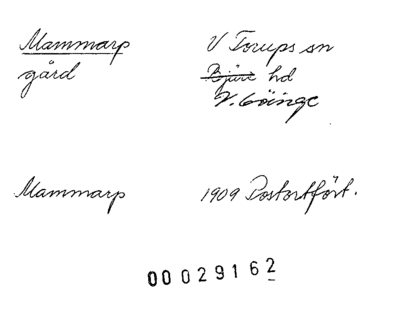 Mammarp V Torups sn
gård Bjäre hd
V. Göinge
Mammarp 1909 Postortfört.
00029162